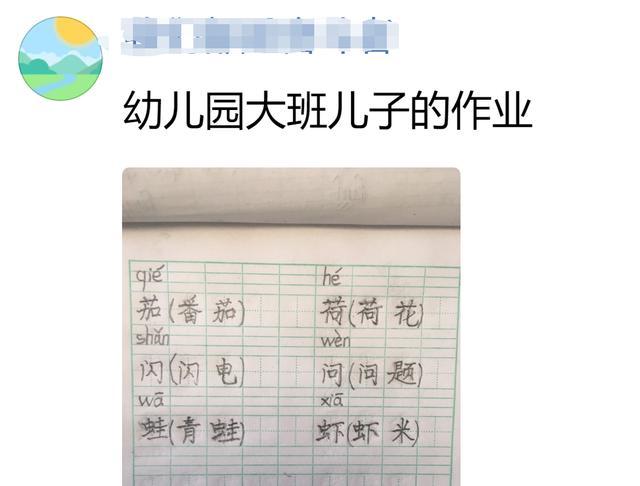 幼儿园大班儿子的作业
qié hé
茄(番茄) 荷(荷花)
shǎn wèn
闪(闪电) 问(问题)
wā xiā
蛙(青蛙) 虾(虾米)